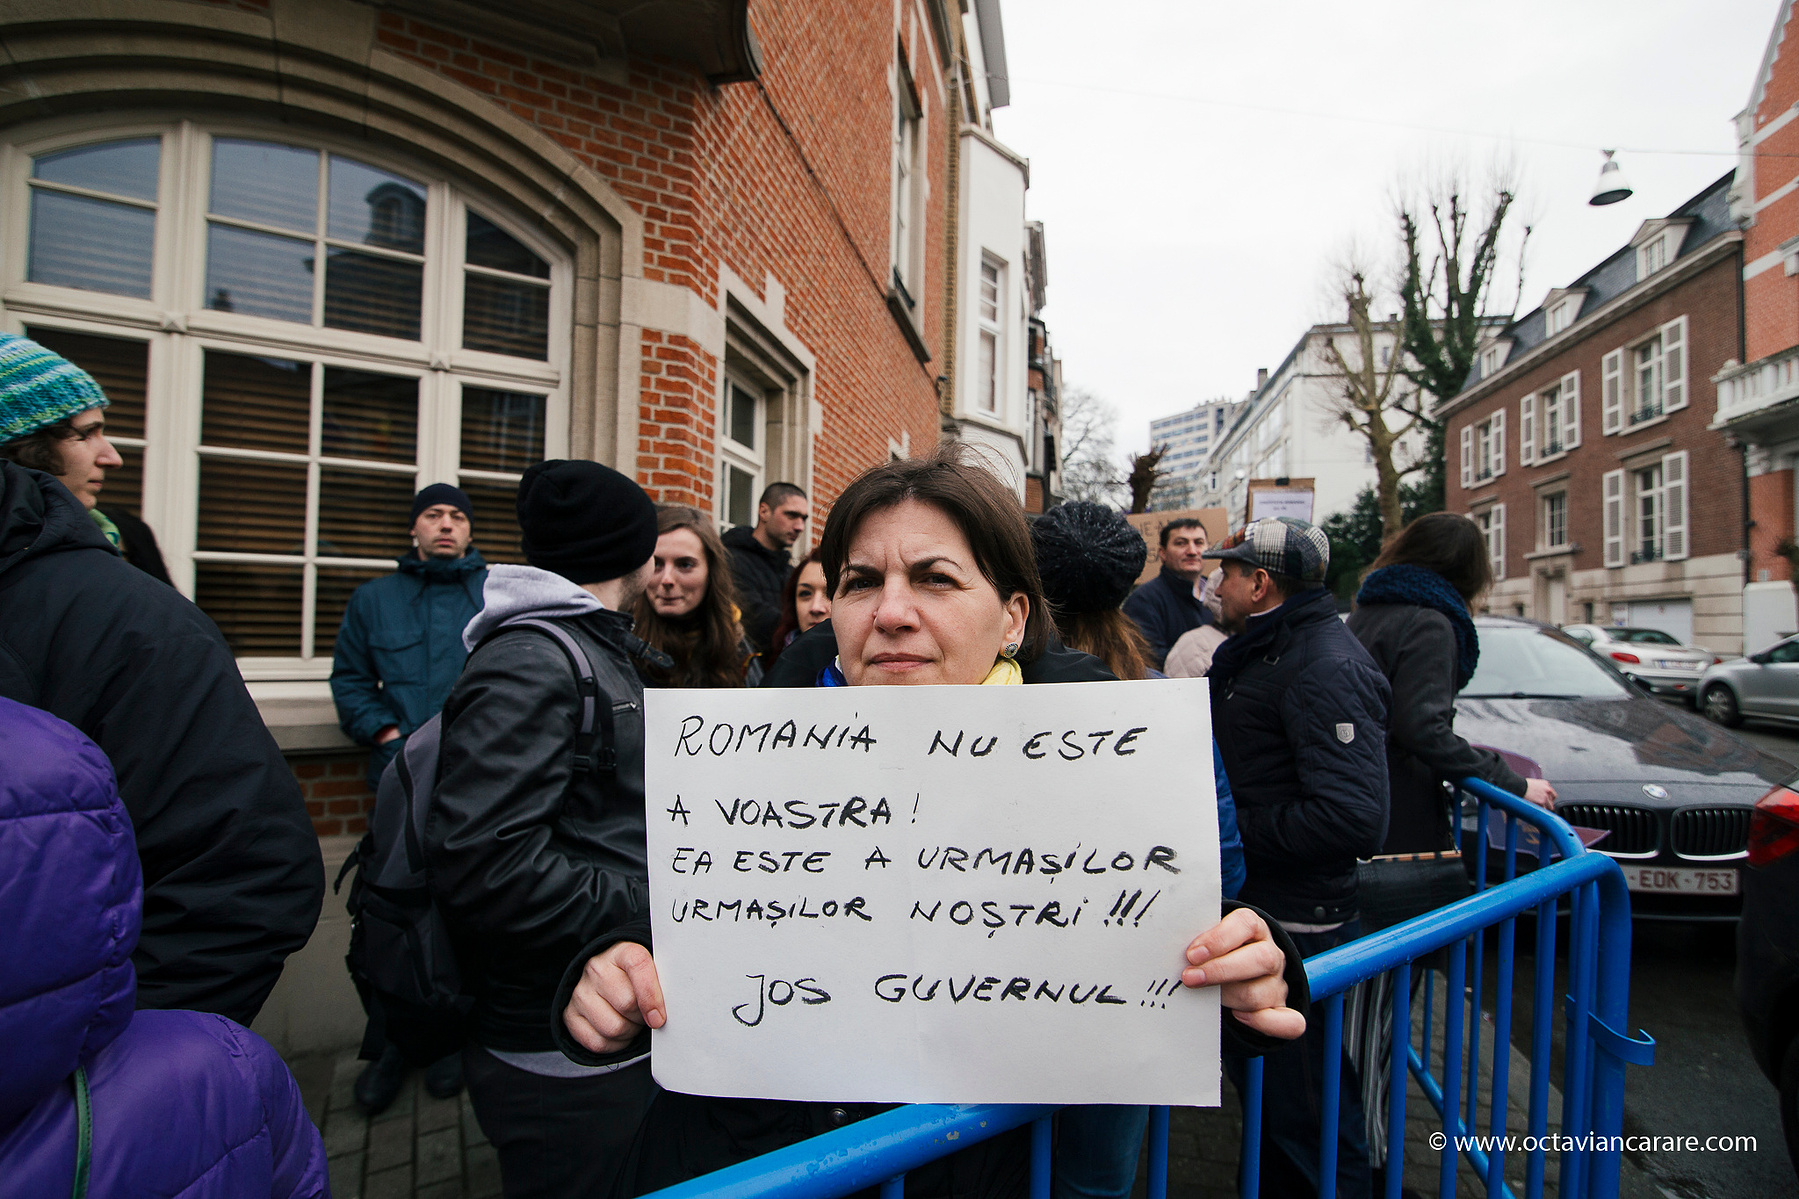 ROMANIA NU ESTE
A VOASTRA!
EA ESTE A URMAȘILOR
URMAȘILOR NOȘTRI!!!
JOS GUVERNUL!!!
-EOK-753
© www.octaviancarare.com